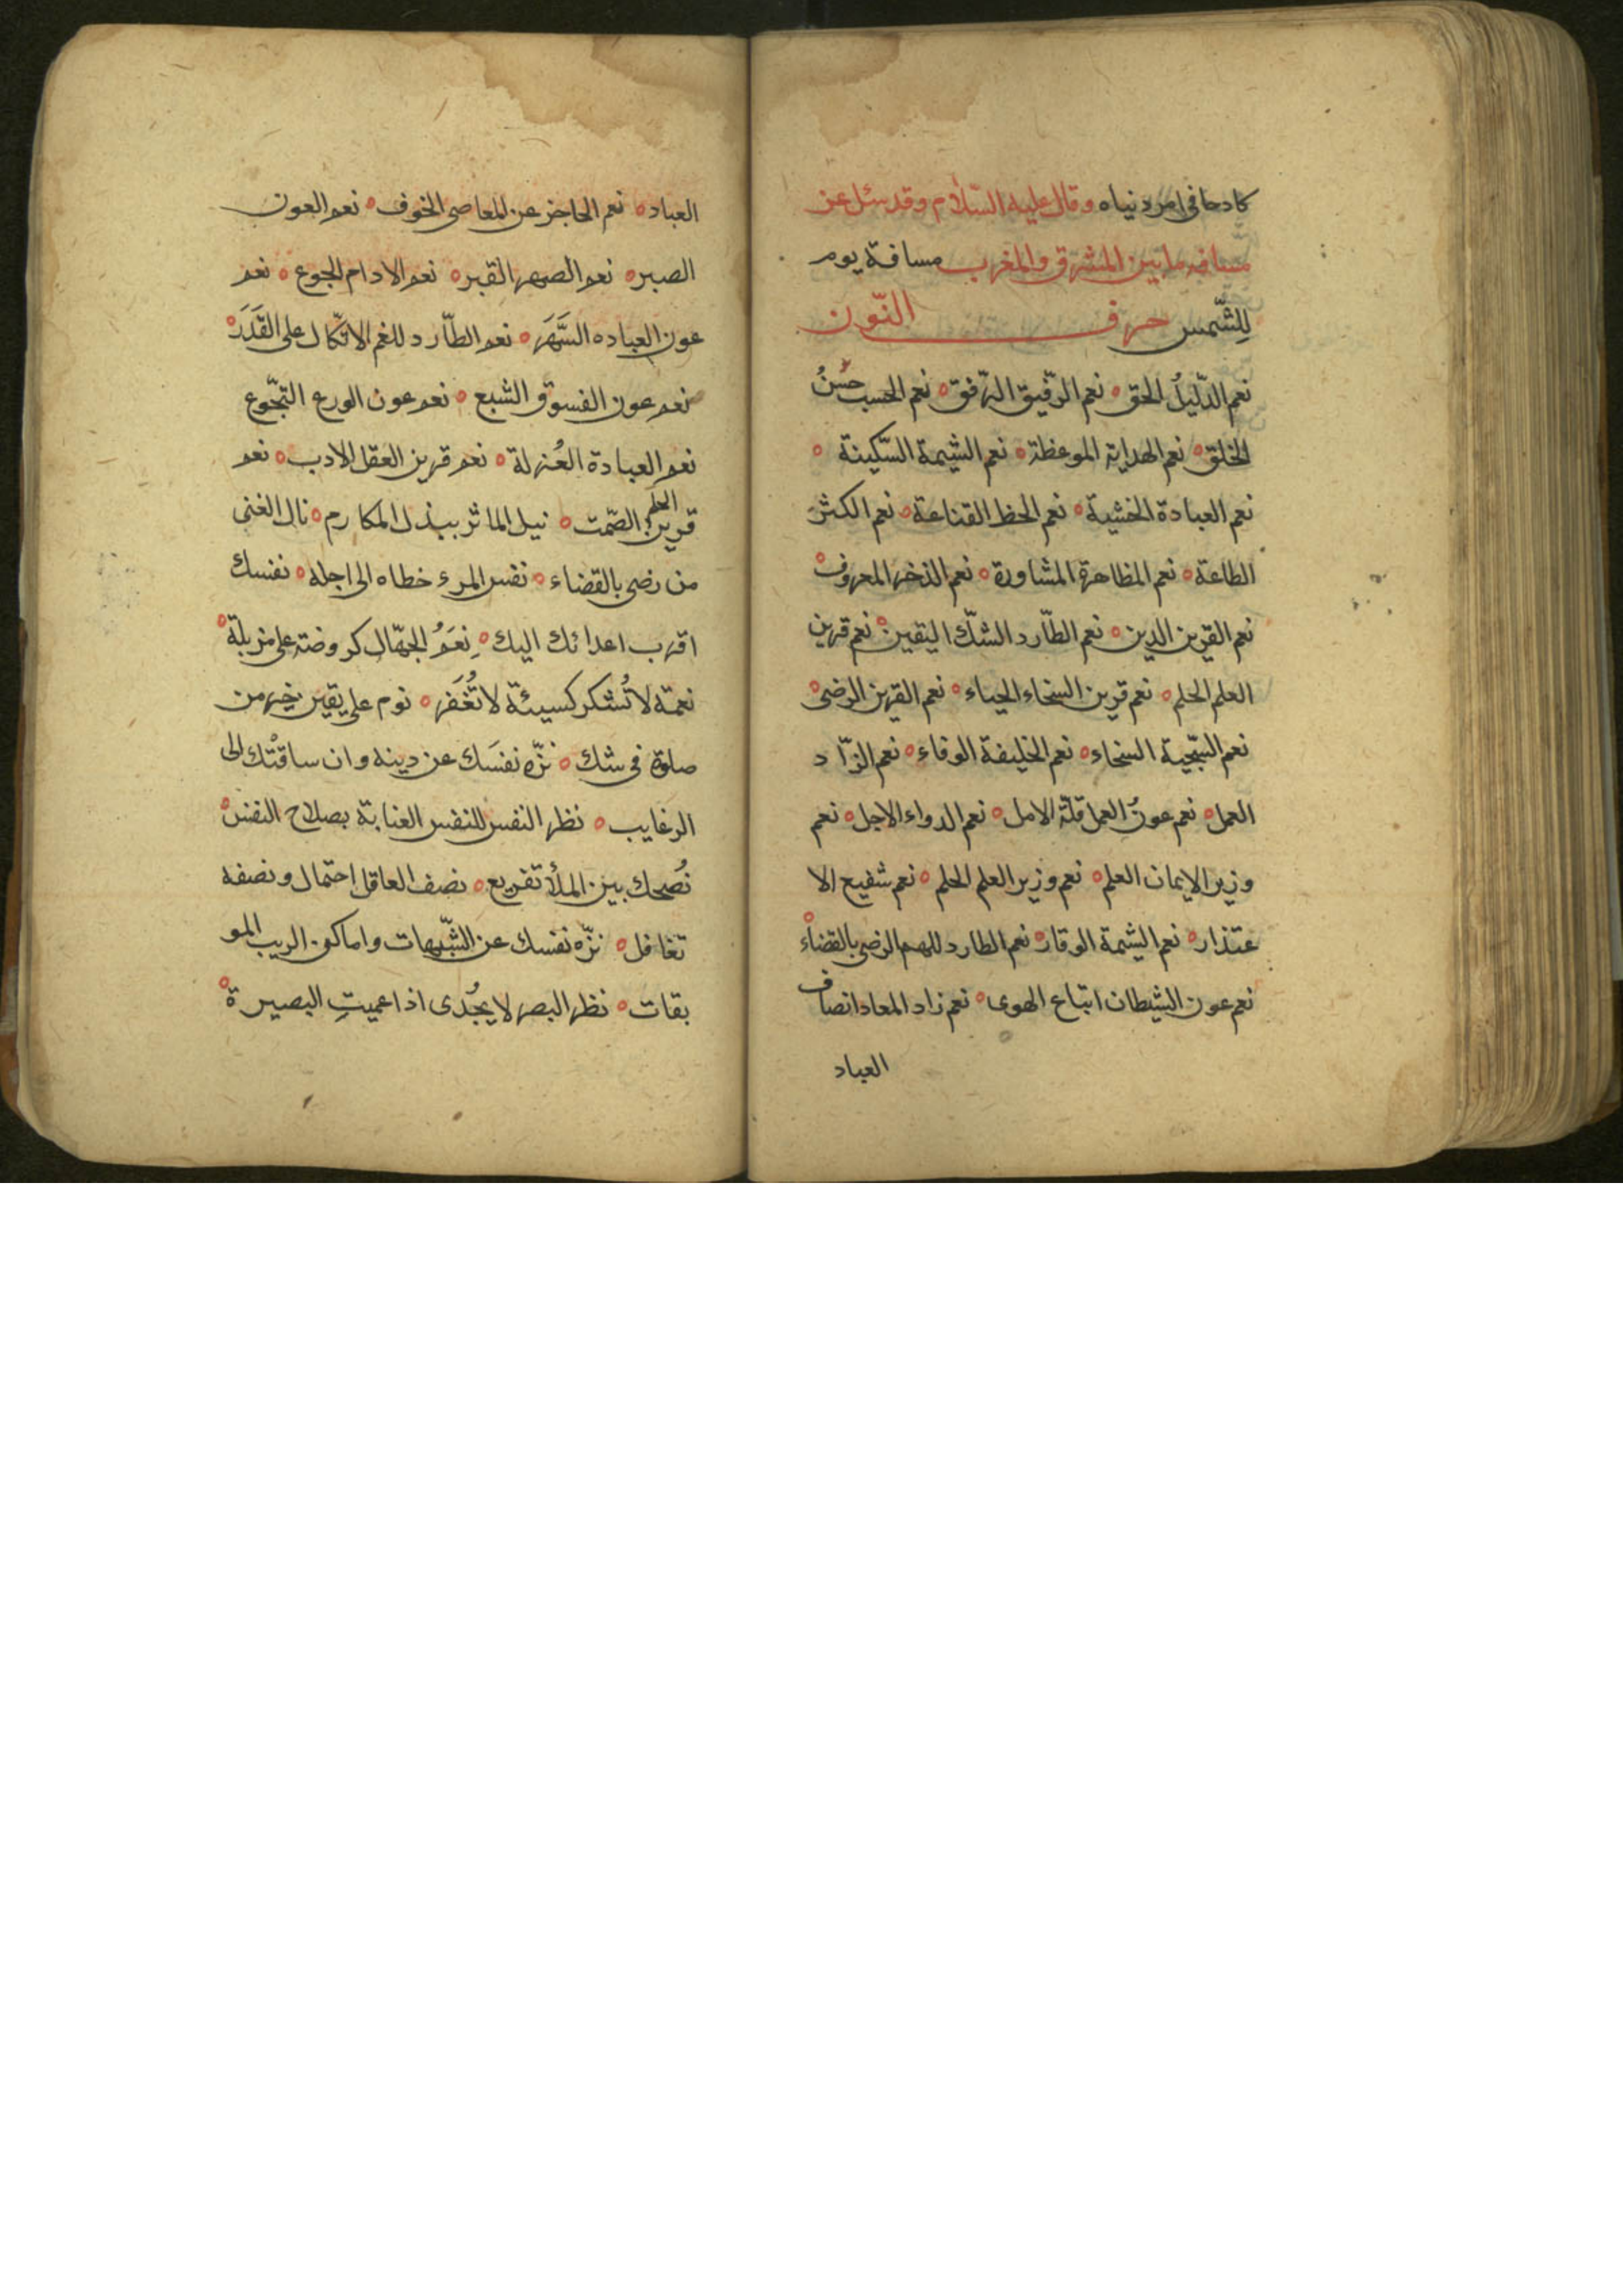 كادحا في امر دنياه وقال عليه السّلام وقد سئل عن
مسافة ما بين المشرق والمغرب مسافة يوم
لِلشّمس حرف النّون
نعم الدّليلُ الحق ه نعم الرّفيق الرّفق ه نعم الحسب حسنُ
الخلق ه نعم الهداية الموعظة ه نعم الشيمة السّكينة ه
نعم العبادة الخشية ه نعم الحظ القناعة ه نعم الكثر
الطاعة ه نعم المظاهرة المشاورة ه نعم الذخر المعروف ه
نعم القرين الدين ه نعم الطّارد الشكّ اليقين ه نعم قرين
العلم الحلم ه نعم قرين السخاء الحياء ه نعم القرين الرضى ه
نعم السّجية السخاء ه نعم الخليفة الوفاء ه نعم الزّاد
العمل ه نعم عونُ العمل قلّة الامل ه نعم الدواء الاجل ه نعم
وزير الايمان العلم ه نعم وزير العلم الحلم ه نعم شفيع الا
عتذار ه نعم الشيمة الوقار ه نعم الطارد للهم الرضى بالقضاء ه
نعم عون الشيطان اتباع الهوى ه نعم زاد المعاد انصاف
العباد
العباد ه نعم الحاجز عن المعاصى الخوف ه نعم العون
الصبر ه نعم الصهر القبر ه نعم الادام الجوع ه نعم
عون العباده السَّهَر ه نعم الطّارد للغم الاتّكال على القَدَرَ ه
نعم عون الفسوق الشبع ه نعم عون الورع التجّوع
نعم العبادة العُزلة ه نعم قرين العقل الادب ه نعم
قرين الحلم الصّمت ه نيل الماثر ببذل المكارم ه نال الغنى
من رضى بالقضاء ه نفس المرء خطاه الى اجله ه نفسك
اقرب اعدائك اليك ه نِعَمُ الجهّال كروضة على مزبلة ه
نعمة لا تُشكر كسيئة لا تُغفَر ه نوم على يقين خير من
صلوة فى شك ه نزّه نفسَك عن دينه وان ساقتْك الى
الرغايب ه نظر النفس للنفس العناية بصلاح النفس ه
نُصحك بين الملأ تقريع ه نصف العاقل احتمال ونصفه
تغافل ه نزّه نفسك عن الشّبهات واماكن الريب المو
بقات ه نظر البصر لا يجُدى اذا عميتِ البصيرة ه